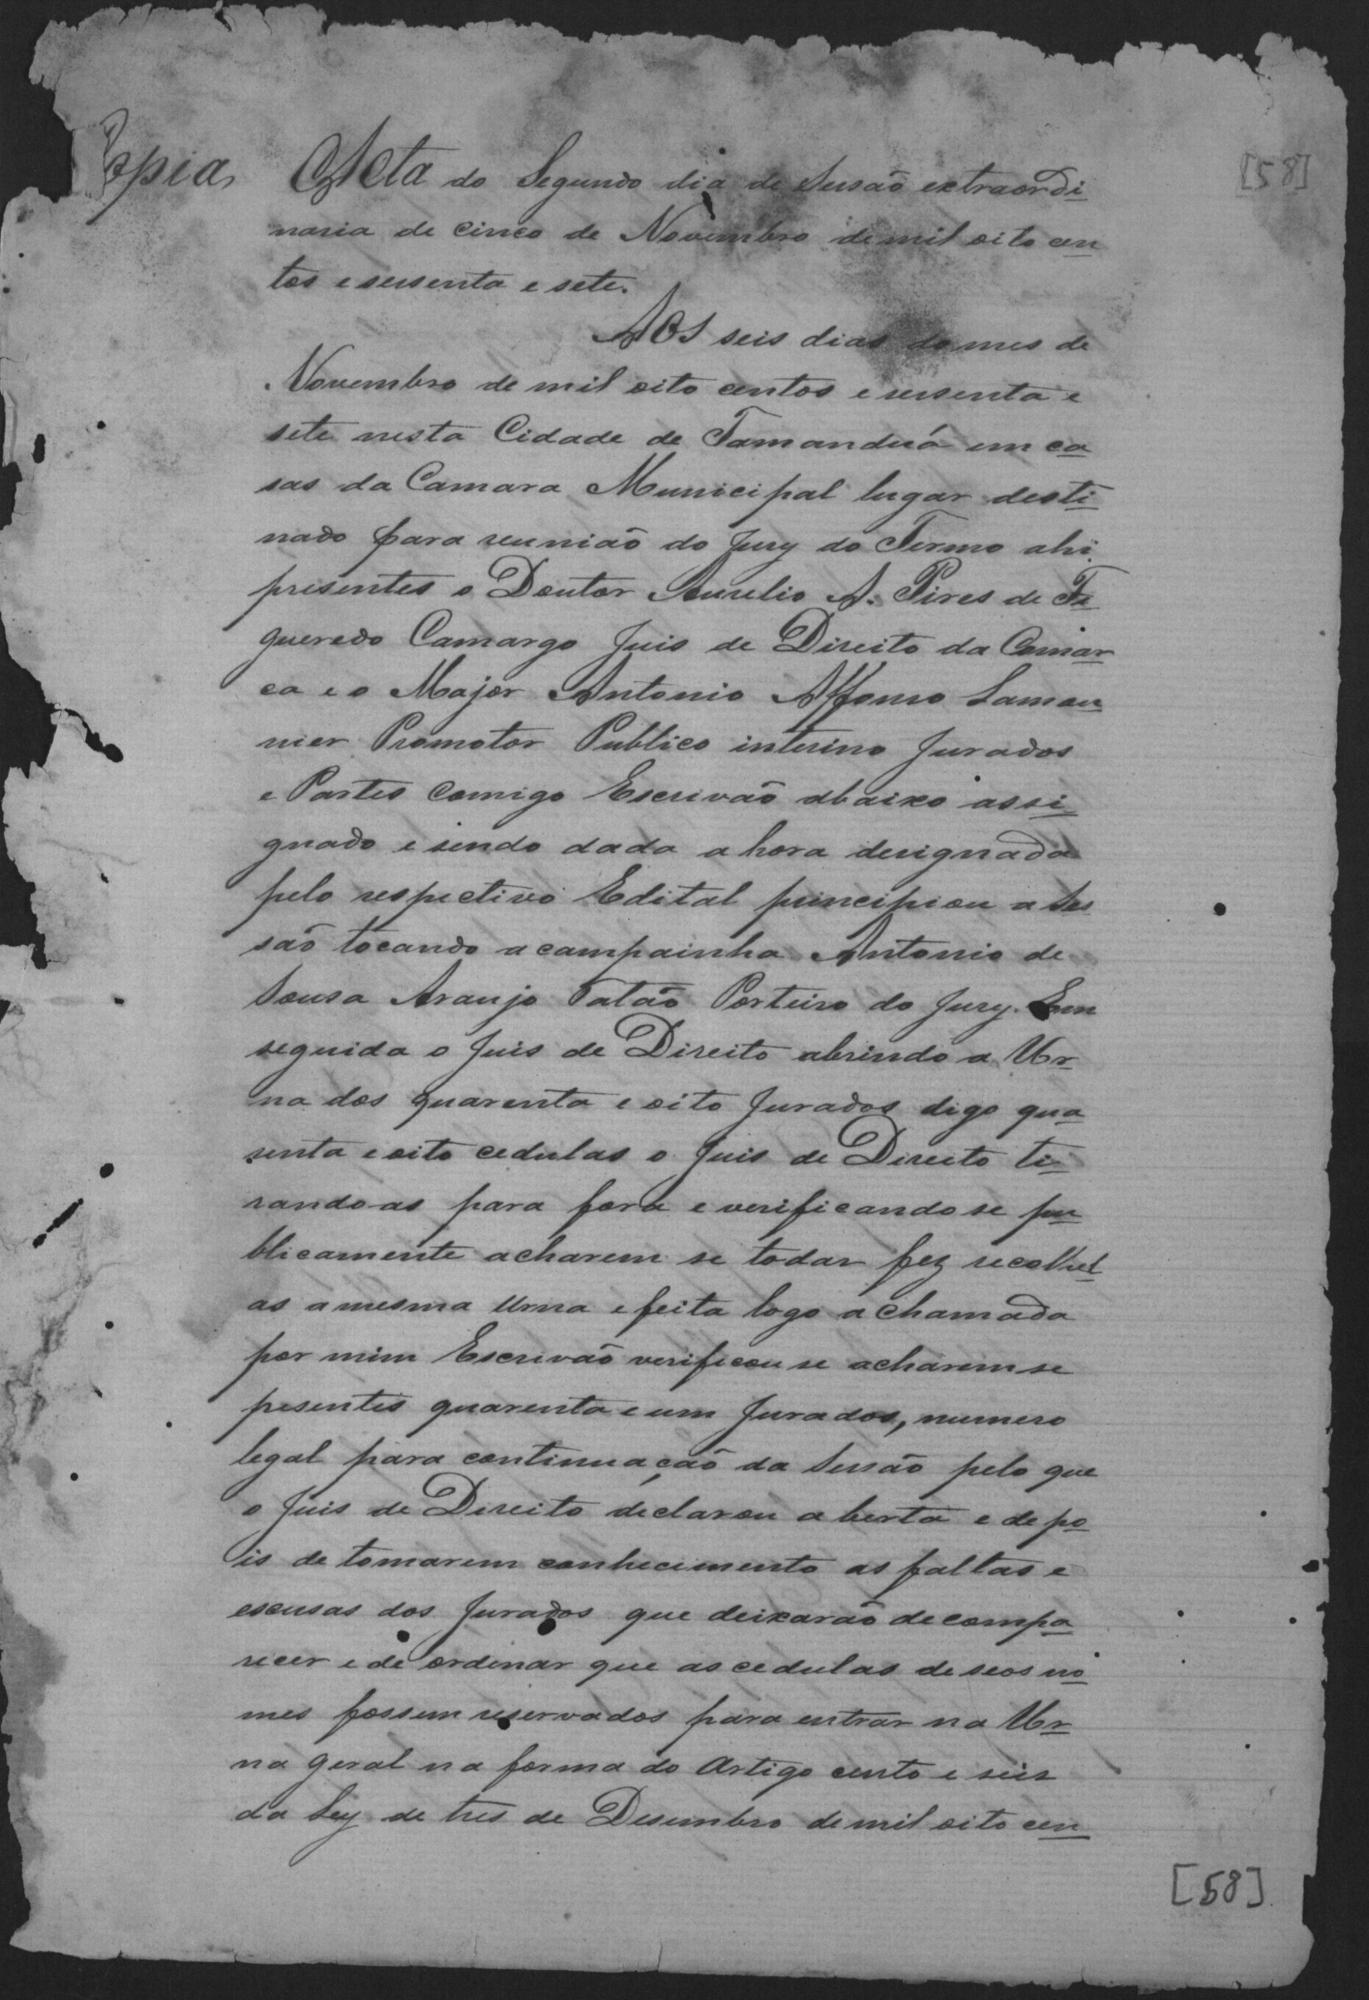 Copia Acta do Segundo dia de Sessaõ extraordi
naria de cinco de Novembro de mil oito cen
tos e sessenta e sete.
Aos seis dias do mes de
Novembro de mil oito centos e sessenta e
sete nesta Cidade de Tamanduá em ca
sas da Camara Municipal lugar desti
nado para reuniaõ do Jury do Termo ahi
presentes o Doutor Aurelio A. Pires de Fi
gueredo Camargo Juis de Direito da Comar
ca e o Major Antonio Affonso Lamou
nier Promotor Publico interino Jurados
e Partes comigo Escrivaõ abaixo assi
gnado e sendo dada a hora designada
pelo respectivo Edital principiou a Ses
saõ tocando a campainha Antonio de
Sousa Araujo Talaõ Porteiro do Jury. Em
seguida o Juis de Direito abrindo a Ur
na dos quarenta e oito Jurados digo qua
renta e oito cedulas o Juis de Direito ti
rando as para fora e verificando se pu
blicamente acharem se todas fez recolhel
as a mesma Urna e feita logo a chamada
por mim Escrivaõ verificou se acharem se
presentes quarenta e um Jurados, numero
legal para continuaçaõ da Sessaõ pelo que
o Juis de Direito declarou aberta e depo
is de tomarem conhecimento as faltas e
escusas dos Jurados que deixaraõ de compa
recer e de ordenar que as cedulas de seos no
mes fossem reservados para entrar na Ur
na geral na forma do Artigo cento e seis
da Ley de tres de Desembro de mil oito cen
[58]
[58]